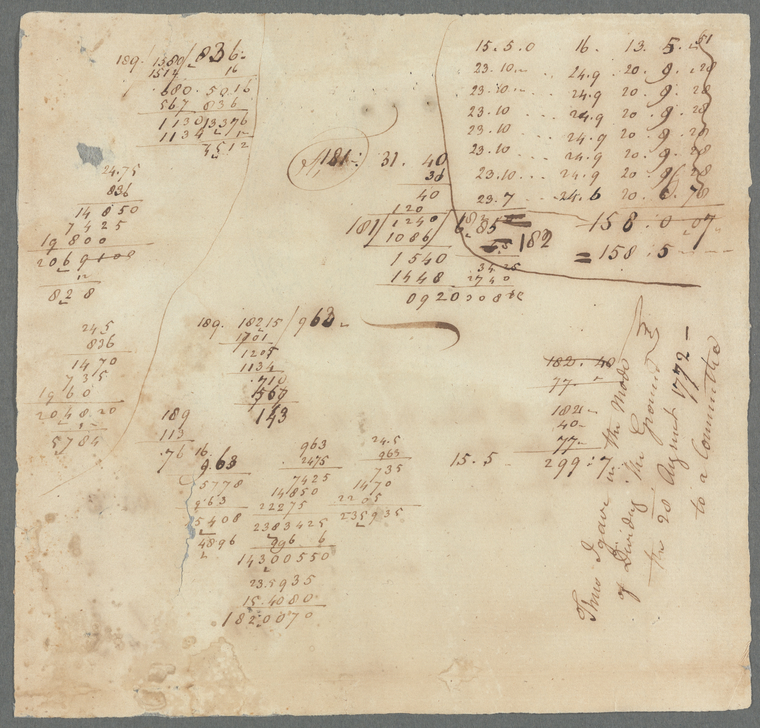 189. 1580/836-
1514 16
680. 5016
567 836
1130 13376
1134
4512
24.75
836
14850
7425
19800
12
828
245
836
1470
735
1960
2048.20
5784
181: 31. 40
30
40
120
181/1240
1086
1540
1448
0920
15.5.0 16. 13. 5.
23.10 24.9 20. 9. 28
23.10 24.9 20. 9. 28
23.10 24.9 20. 9. 28
23.10 24.9 20. 9. 28
23.10 24.9 20. 9. 28
23.10 24.9 20. 9. 78
23.7 24.6 20. 6. 78
158:0
182
=158:5
189. 18215/963-
1701
1205
1134
710
567
143
189
113
76
16
963
5778
963
15408
4896
963
2475
7425
14850
22275
2383425
996 6
14300550
23.5935
15.4080
1820070
24.5
963
735
1470
2205
235935
182. 40
77
182-
40-
77-
15.5 - 299:7
This I gave in the Mode
of Dividing the Ground
the 20 August 1772 -
to a Committee